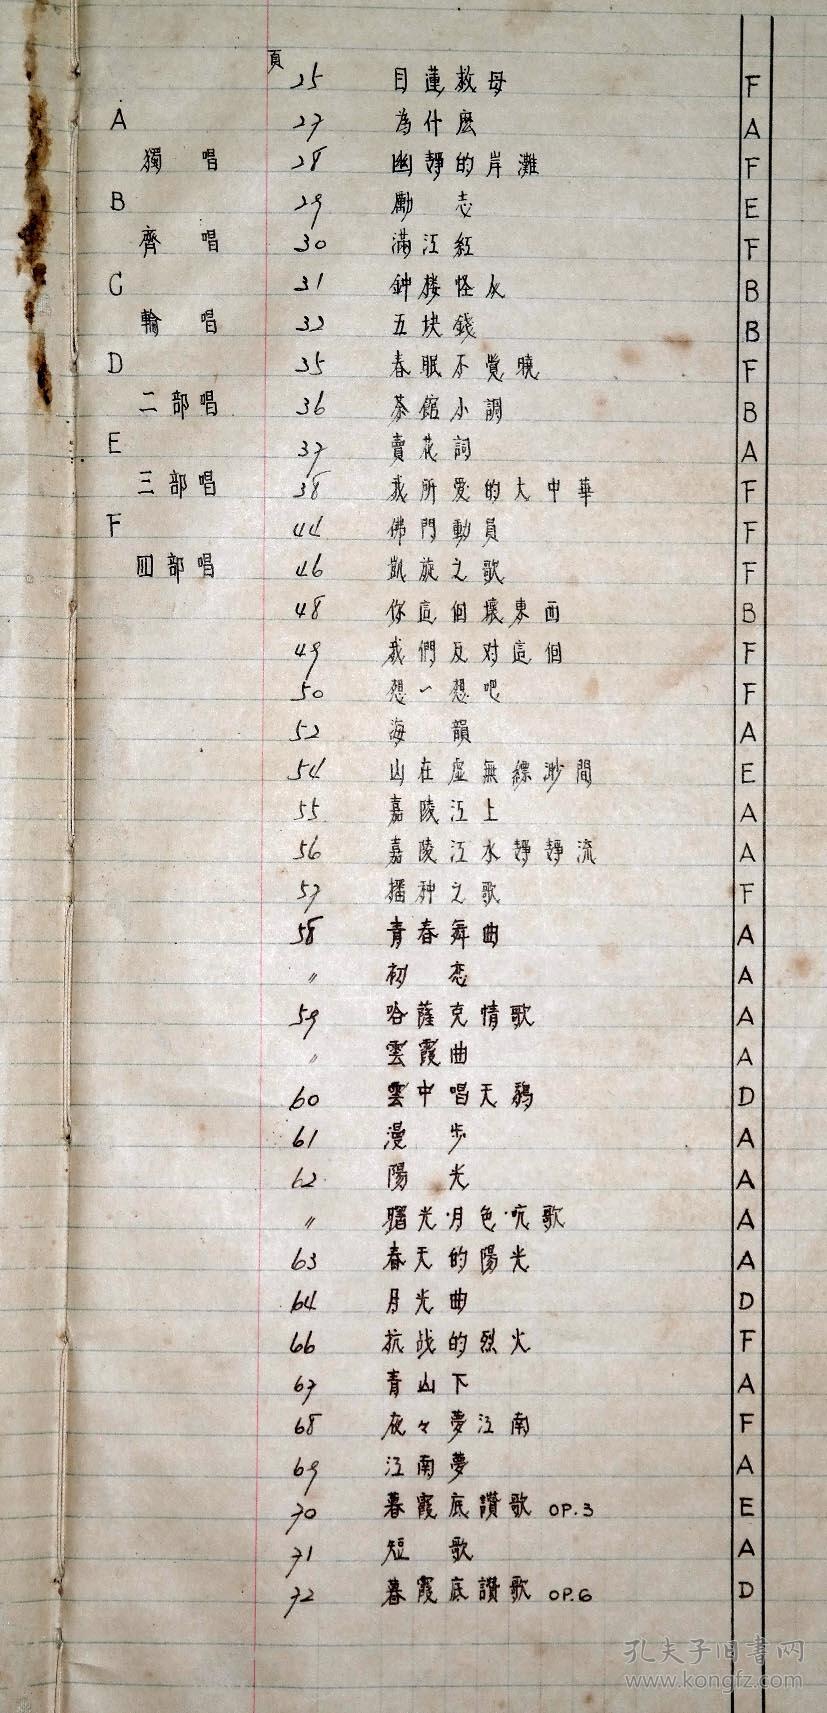 頁
25 目蓮救母 F
A 27 為什麽 A
獨唱 28 幽靜的岸灘 F
B 29 勵志 E
齊唱 30 滿江紅 F
C 31 鈡楼怪人 B
輪唱 32 五块錢 B
D 35 春眠不覺曉 F
二部唱 36 茶館小調 B
E 37 賣花詞 A
三部唱 38 我所爱的大中華 F
F 44 佛門動員 F
四部唱 46 凱旋之歌 F
48 你這個壞東西 B
49 我們反对這個 F
50 想一想吧 F
52 海韻 A
54 山在虛無縹渺間 E
55 嘉陵江上 A
56 嘉陵江水靜靜流 A
57 播种之歌 F
58 青春舞曲 A
〃 初恋 A
59 哈薩克情歌 A
〃 雲霞曲 A
60 雲中唱天鵝 D
61 漫步 A
62 陽光 A
〃 曙光·月色·吭歌 A
63 春天的陽光 A
64 月光曲 D
66 抗战的烈火 F
67 青山下 A
68 夜々夢江南 F
69 江南夢 A
70 暮霞底讚歌 OP.3 E
71 短歌 A
72 暮霞底讚歌 OP.6 D
孔夫子旧書网
www.kongfz.com